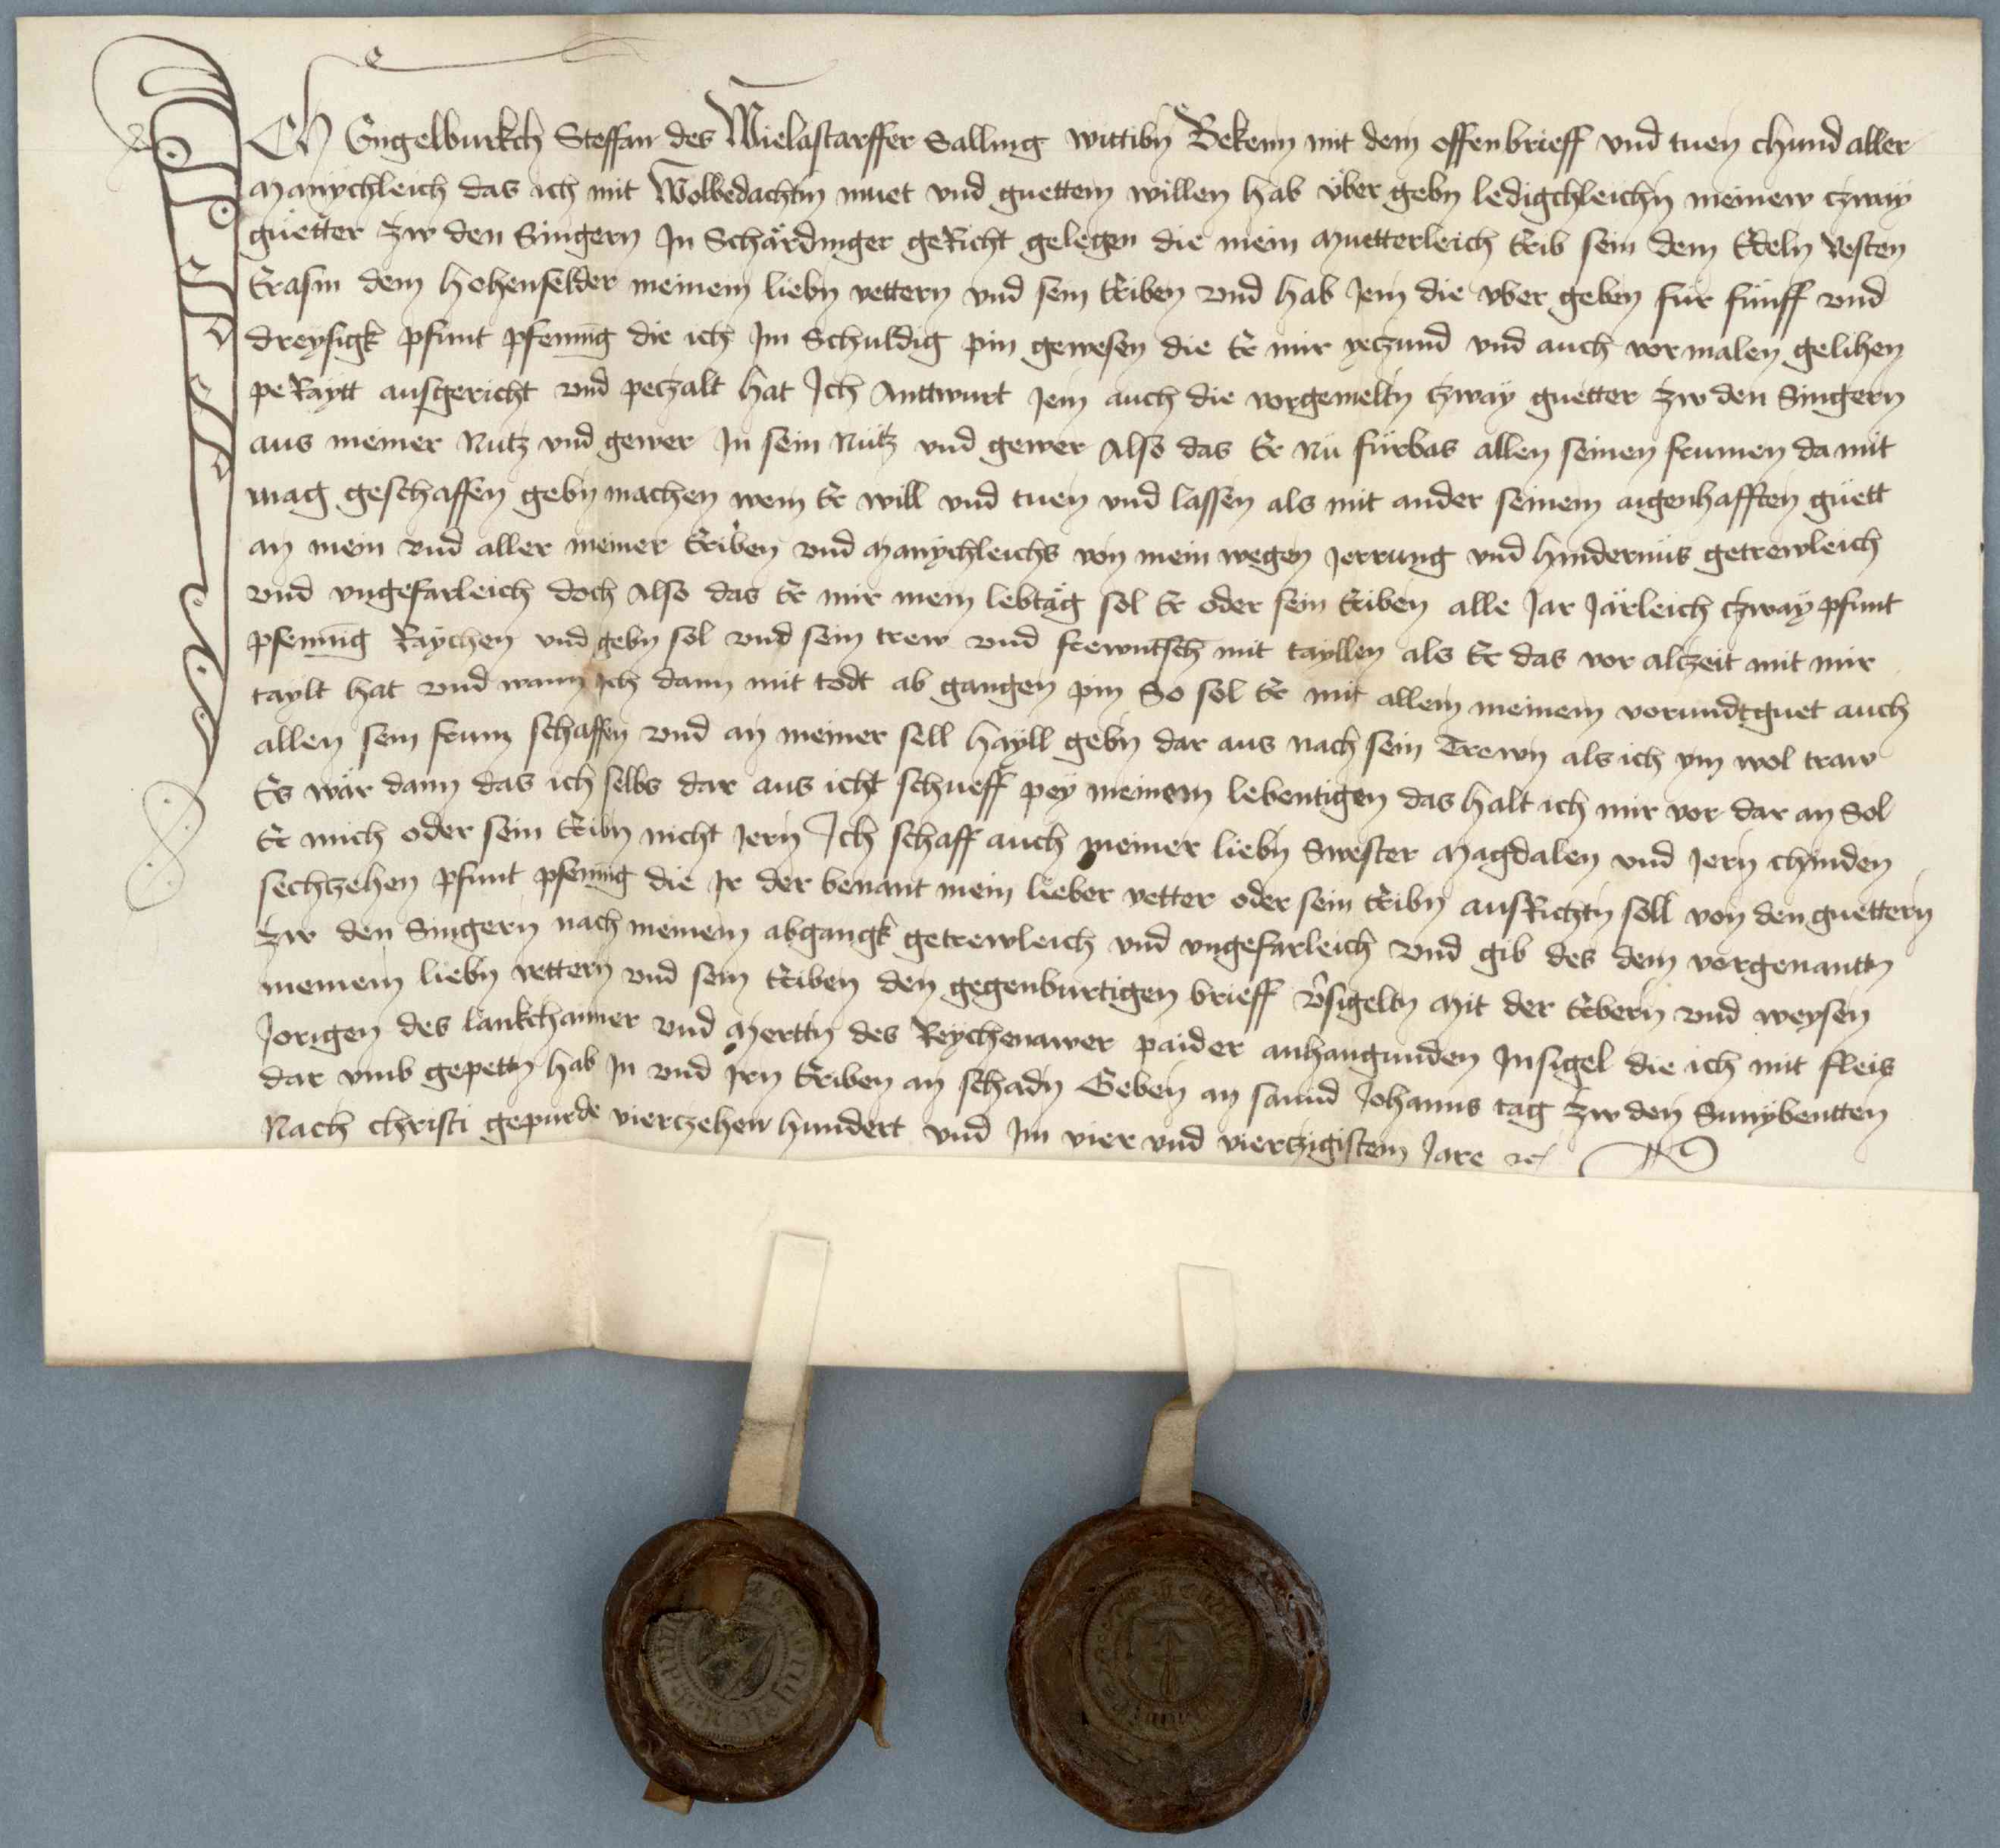 ICh Engelburkch Steffan des Mielastarffer Salling wittibn Bekenn mit dem offenbrieff vnd tuen chund aller
Manychleich das ich mit Wolbedachtm muet vnd guettem willen hab vber gebn ledigchleichn meinew czway
guetter zw den Singern In Schärdinger geRicht gelegen die mein Muetterleich Erib sein dem Edeln Vesten
Erasm dem Hohenfelder meinem liebn vettern vnd sein Eriben vnd hab Jem die vber geben für fünff vnd
dreysigk pfunt pfennīg die ich Im Schuldig pin gewesen die Er mir yeczund vnd auch vor malen gelihen
peRaytt ausgericht vnd peczalt hat Ich Anttwurt Jem auch die vorgemeltn czway guetter zw den Singern
aus meiner Nutz vnd gewer In sein Nütz vnd gewer Also das Er Nü fürbas allen seinen frumen da mit
mag geschaffen gebn machen wem Er will vnd tuen vnd lassen als mit ander seinem aigenhafften güett
an mein vnd aller meiner Eriben vnd Manychleichs von mein wegen Jerrung vnd hindernüs getrewleich
vnd vngefarleich doch Also das Er mir mein lebtäg sol Er oder sein Eriben alle Jar Järleich czway pfunt
pfennīg Raychen vnd gebn sol vnd sein trew vnd frewntsch mit tayllen als Er das vor alczeit mit mir
taylt hat vnd wann Ich dann mit todt ab gangen pin So sol Er mit allem meinem vorundtguet auch
allen sein frum schaffen vnd an meiner sell hayll gebn dar aus nach sein Trewn als ich ym wol traw
Es wär dann das ich selbs dar aus icht schueff pey meinem lebentigen das halt ich mir vor dar an Sol
Er mich oder sein Eribn nicht Jern Ich schaff auch meiner liebn Swester Magdalen vnd Jern chinden
sechczehen pfunt pfennīg die Ir der benant mein lieber vetter oder sein Eribn ausRichtn soll von den guettern
zw den Singern nach meinem abgangk getrewleich vnd vngefarleich vnd gib des dem vorgenantn
meinem liebn vettern vnd sein Eriben den gegenburtigen brieff v̂sigeltn Mit der Erbern vnd weysen
Jorigen des lankchaimer vnd Merttn des Reychenawer paider anhangunden Insigel die ich mit fleis
dar vmb gepettn hab In vnd Irn Eriben an schadn Geben an sannd Johanns tag zw den Sunybentten
Nach christi gepurde vierczehen hundert vnd Im vier vnd vierczigistem Jare ꝛc